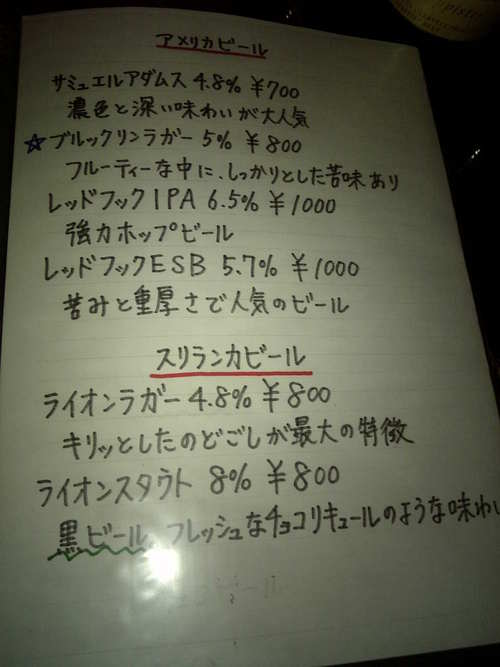 アメリカビール
サミュエルアダムス 4.8% ¥700
濃色と深い味わいが大人気
☆ブルックリンラガー 5% ¥800
フルーティーな中に、しっかりとした苦味あり
レッドフックIPA 6.5% ¥1000
強力ホップビール
レッドフックESB 5.7% ¥1000
苦みと重厚さで人気のビール
スリランカビール
ライオンラガー 4.8% ¥800
キリッとしたのどごしが最大の特徴
ライオンスタウト 8% ¥800
黒ビール、フレッシュなチョコリキュールのような味わい